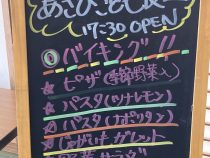 17:30 OPEN
◎バイキング!!
☆ピザ(季節野菜入)
☆パスタ(ツナレモン)
☆パスタ(ナポリタン)
☆じゃがいもガレット
☆野菜サラダ